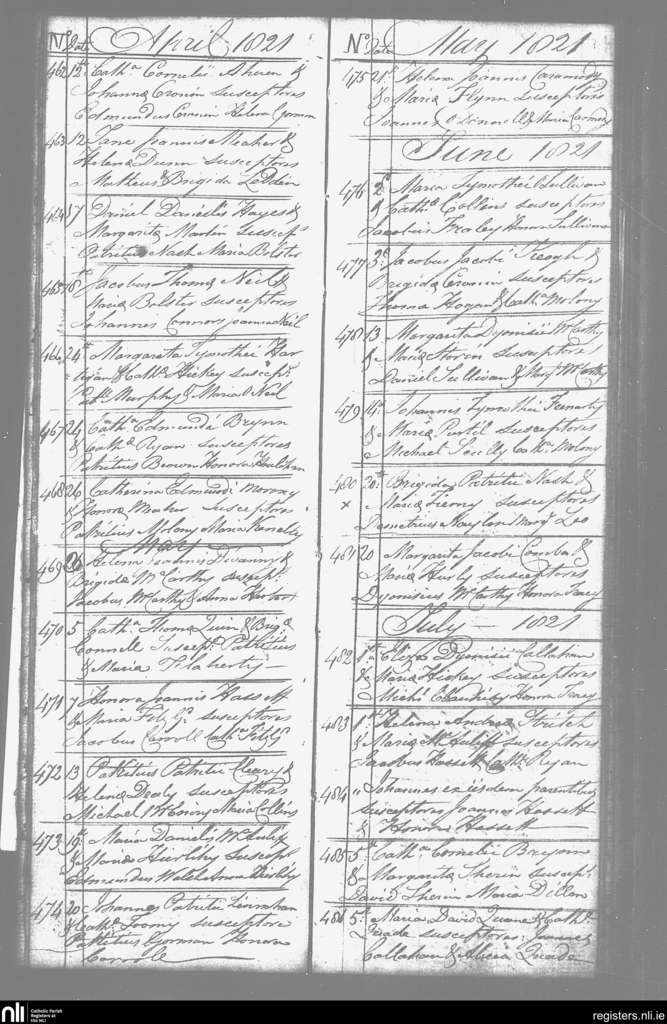 No Date April 1821
462 12th Catha Cornelii Ahern &
Johanna Cronin susceptores
Edmundus Cronin Helena Gorman
463 12 Jane Joannis Meaher &
Helena Dunn susceptores
Matheus & Brigida Leddin
464 17 Daniel Danielis Hayes &
Margarita Martin suscepts
Patritius Nash Maria Bolster
465 18th Jacobus Thoma Neil &
Maria Bolster susceptores
Johannis Connors Joanna Neil
466 24th Margareta Tymothei Har
tigan & Catha Hickey suscepts
Murphy & Maria Neil
467 24 Catha Edmundi Brynn
& Catha Ryan susceptores
Patritius Brown Honora Houlihan
468 26 Catherina Edmundi Morony
& Honora Maher susceptores
Patritius Molony Maria Kennelly
May
469 Helena Joannis &
Brigida McCarthy suscepts
Jacobus McCarthy & Anna
470 5 Catha Thoma Quin & Brigd
Connell suscepts Patritius
& Maria Flaherty
471 7 Honora Joannis Hassett
& Maria Fitz Gd susceptores
Jacobus Carroll Catha Fitz Gd
472 13 Patritius Patritii Cleary &
Helena Dealy susceptores
Michael Maria Collins
473 19th Maria Danielis McAuliff
& Maria Hurlihy suscepts
Edmundus Hurlihy
474 20 Johannes Patritii Linnahan
& Catha Toomy susceptore
Patritius Gorman Honora
Carroll
No Date May 1821
475 21st Helena Joannis Carmody
& Maria Flynn susceptores
Joannes O'Donnell & Maria Carmody
June 1821
476 2d Maria Tymothei Sullivan
& Catha Collins susceptors
Jacobus Fraley Honora Sullivan
477 3d Jacobus Jacobi Keogh &
Brigida Cronin susceptores
Thoma Hogan & Catha Molony
478 13 Margarita Dyonisii McCarthy
& Maria Ahern susceptors
Daniel Sullivan & Mary McCarthy
479 14th Johannis Tymothei
& Maria Purtil susceptores
Michael Scully Catha Molony
480 20th Brigida Patritii Nash &
x Maria Tierny susceptores
Demetrius Moylan Margt Leo
481 20 Margarita Jacobi Comba &
Maria Hurly susceptores
Dyonisius McCarthy Honora Tracy
July 1821
482 1st Eliza Dyonisii Callahan
& Maria Hickey susceptores
Michl Honora Tracy
483 1st Helena Andrea Stritch
& Maria McAuliff susceptores
Jacobus Hassett Catha Ryan
484 " Johannes ex iisdem parentibus
susceptores Joannes Hassett
& Honora Hassett
485 5th Catha Cornelii Brynne
& Margarita Sherin suscepts
David Sherin Maria Dillon
486 5th Maria David Quane & Catha
Quade susceptores Joannes
Callahan & Alicia Quade
nli
Catholic Parish
Registers at
the NLI
registers.nli.ie